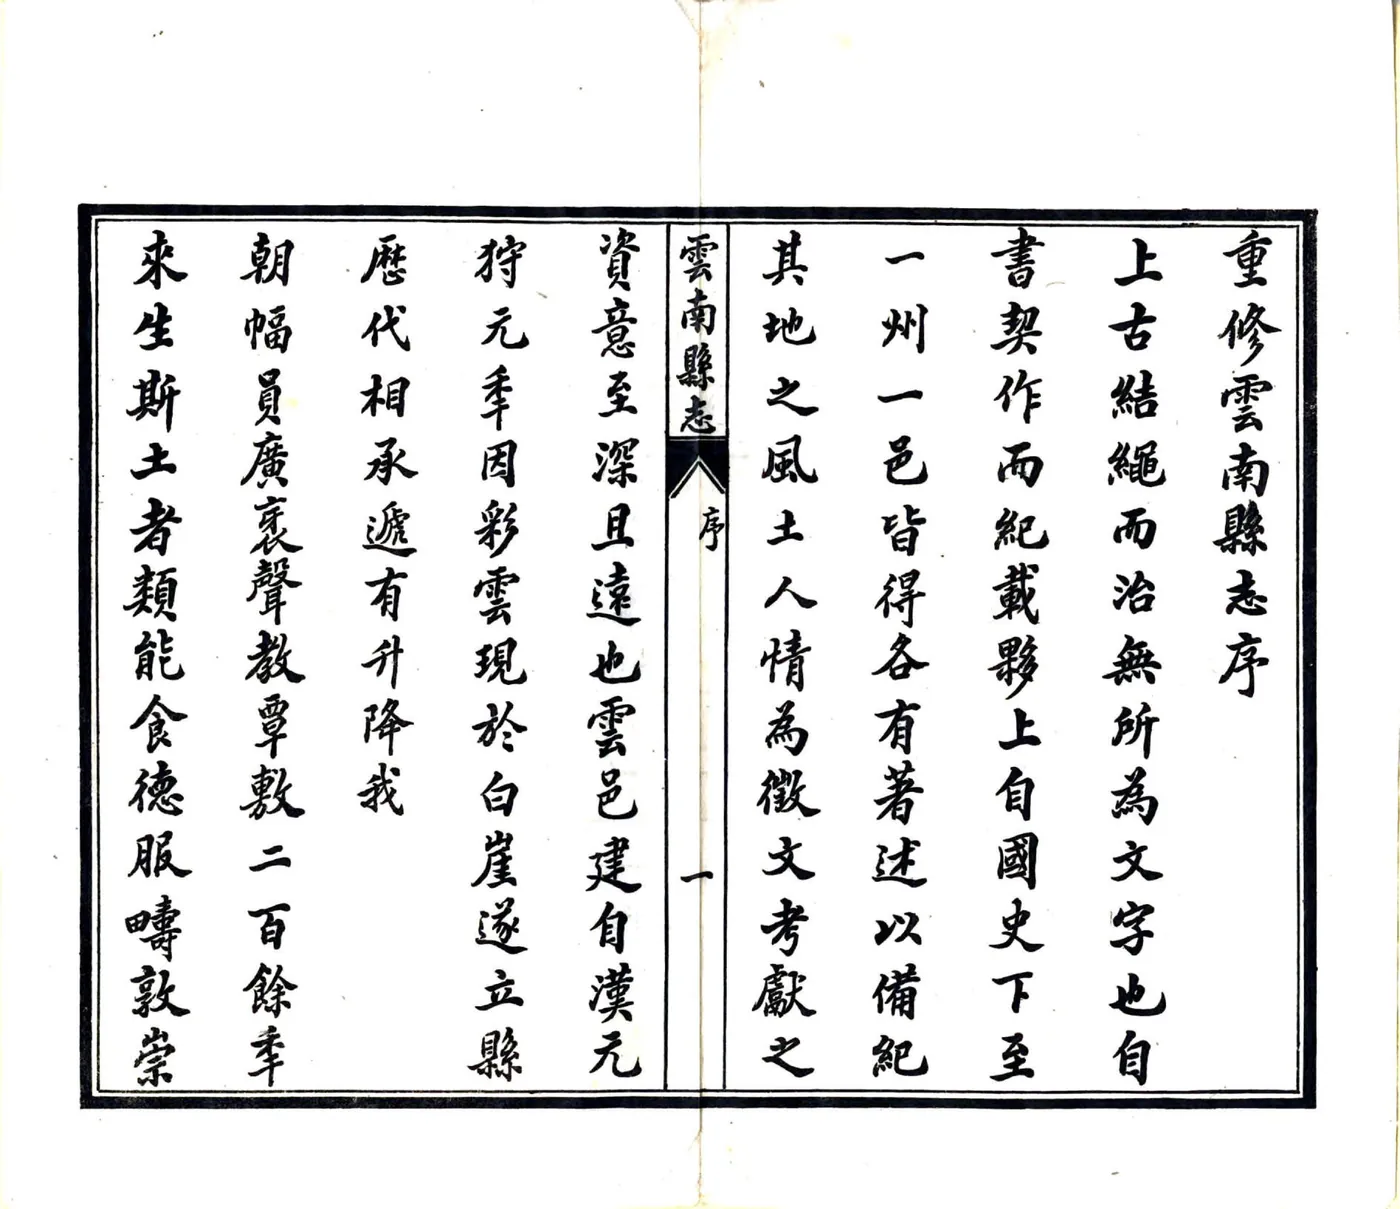 重修雲南縣志序
上古結繩而治無所為文字也自
書契作而紀載夥上自國史下至
一州一邑皆得各有著述以備紀
其地之風土人情為徵文考獻之
雲南縣志
序
一
資意至深且遠也雲邑建自漢元
狩元秊因彩雲現於白崖遂立縣
歷代相承遞有升降我
朝幅員廣袤聲教覃敷二百餘秊
來生斯土者類能食德服疇敦崇